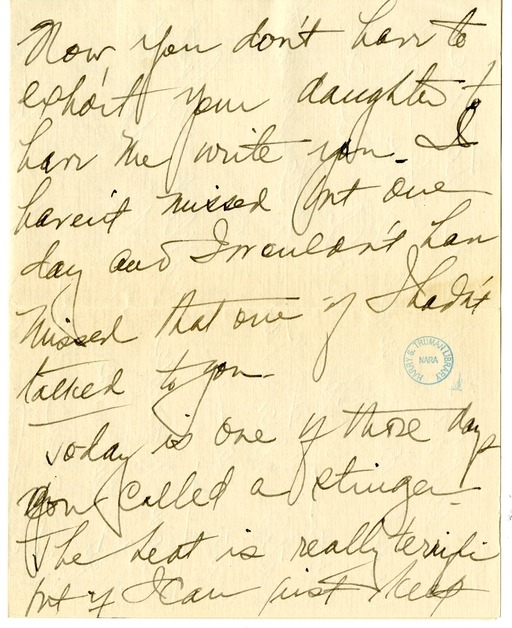 Now you don't have to
exhort your daughter to
have me write you. I
haven't missed but one
day and I wouldn't have
missed that one if I hadn't
talked to you.
HARRY S. TRUMAN LIBRARY
NARA
Today is one of those days
you called a stinger.
The heat is really terrific
but if I can just keep